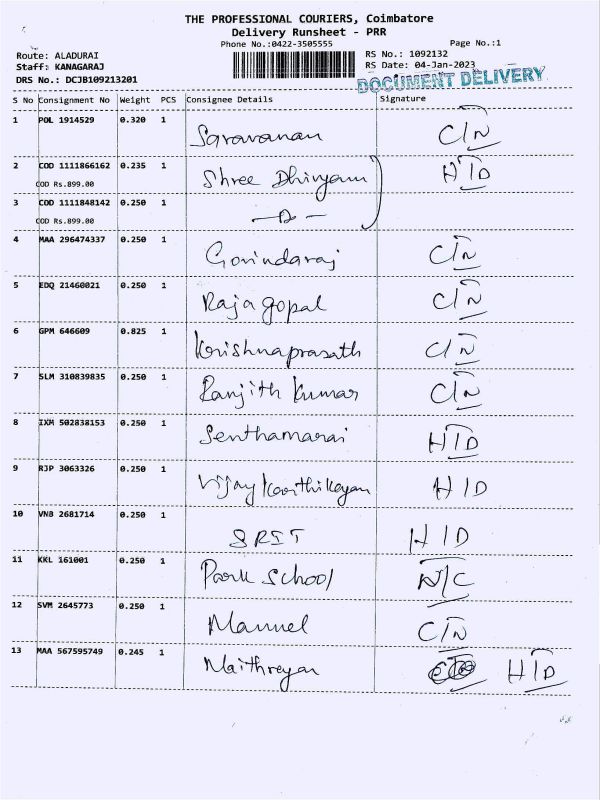 THE PROFESSIONAL COURIERS, Coimbatore
Delivery Runsheet - PRR
Phone No.:0422-3505555 Page No.:1
Route: ALADURAI RS No.: 1092132
Staff: KANAGARAJ RS Date: 04-Jan-2023
DRS No.: DCJB109213201 DOCUMENT DELIVERY
S No Consignment No Weight PCS Consignee Details Signature
1 POL 1914529 0.320 1 Saravanan C/N
2 COD 1111866162 0.235 1 Shree Dhivyam H/D
COD Rs.899.00
3 COD 1111848142 0.250 1 —D—
COD Rs.899.00
4 MAA 296474337 0.250 1 Govindaraj C/N
5 EDQ 21460021 0.250 1 Rajagopal C/N
6 GPM 646609 0.825 1 Krishnaprasath C/N
7 SLM 310839835 0.250 1 Ranjith Kumar C/N
8 IXM 502838153 0.250 1 Senthamarai H/D
9 RJP 3063326 0.250 1 Vijay Karthikeyan H/D
10 VNB 2681714 0.250 1 SRIT H/D
11 KKL 161001 0.250 1 Park School N/C
12 SVM 2645773 0.250 1 Mannel C/N
13 MAA 567595749 0.245 1 Maithreyan H/D